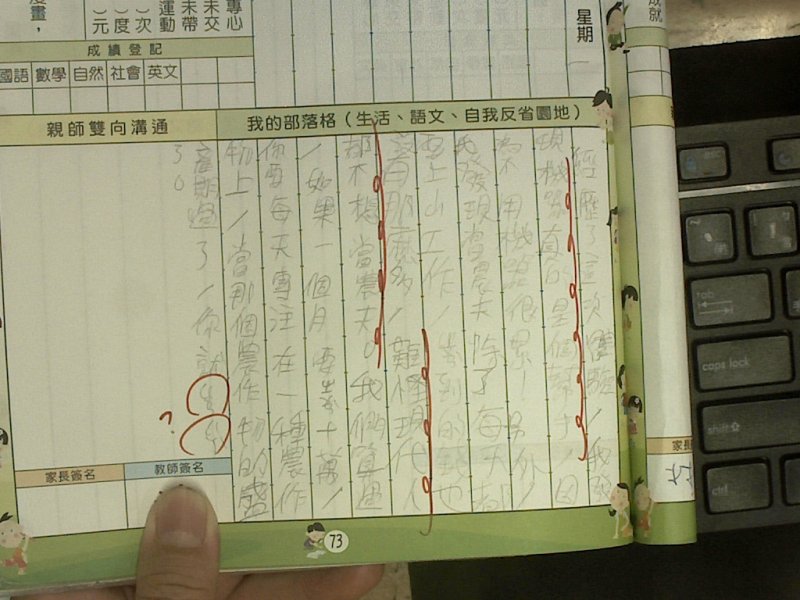 專心
未交
未帶
運動
）次
）度
）元
成績登記
國語 數學 自然 社會 英文
星期
成就
親師雙向溝通
我的部落格（生活、語文、自我反省園地）
經歷了這次體驗，我發
現機器真的是個幫手！因
為不用機器很累！另外，
我發現當農夫除了每天都
要上山工作
那麼多，難怪現代人
都不想當農夫。我們算過
，如果一個月要幾十萬，
你要每天專注在一種農作
物上，當那個農作物的盛
產期過了，你就
?
家長簽名
教師簽名
73
tab
caps lock
shift
ctrl